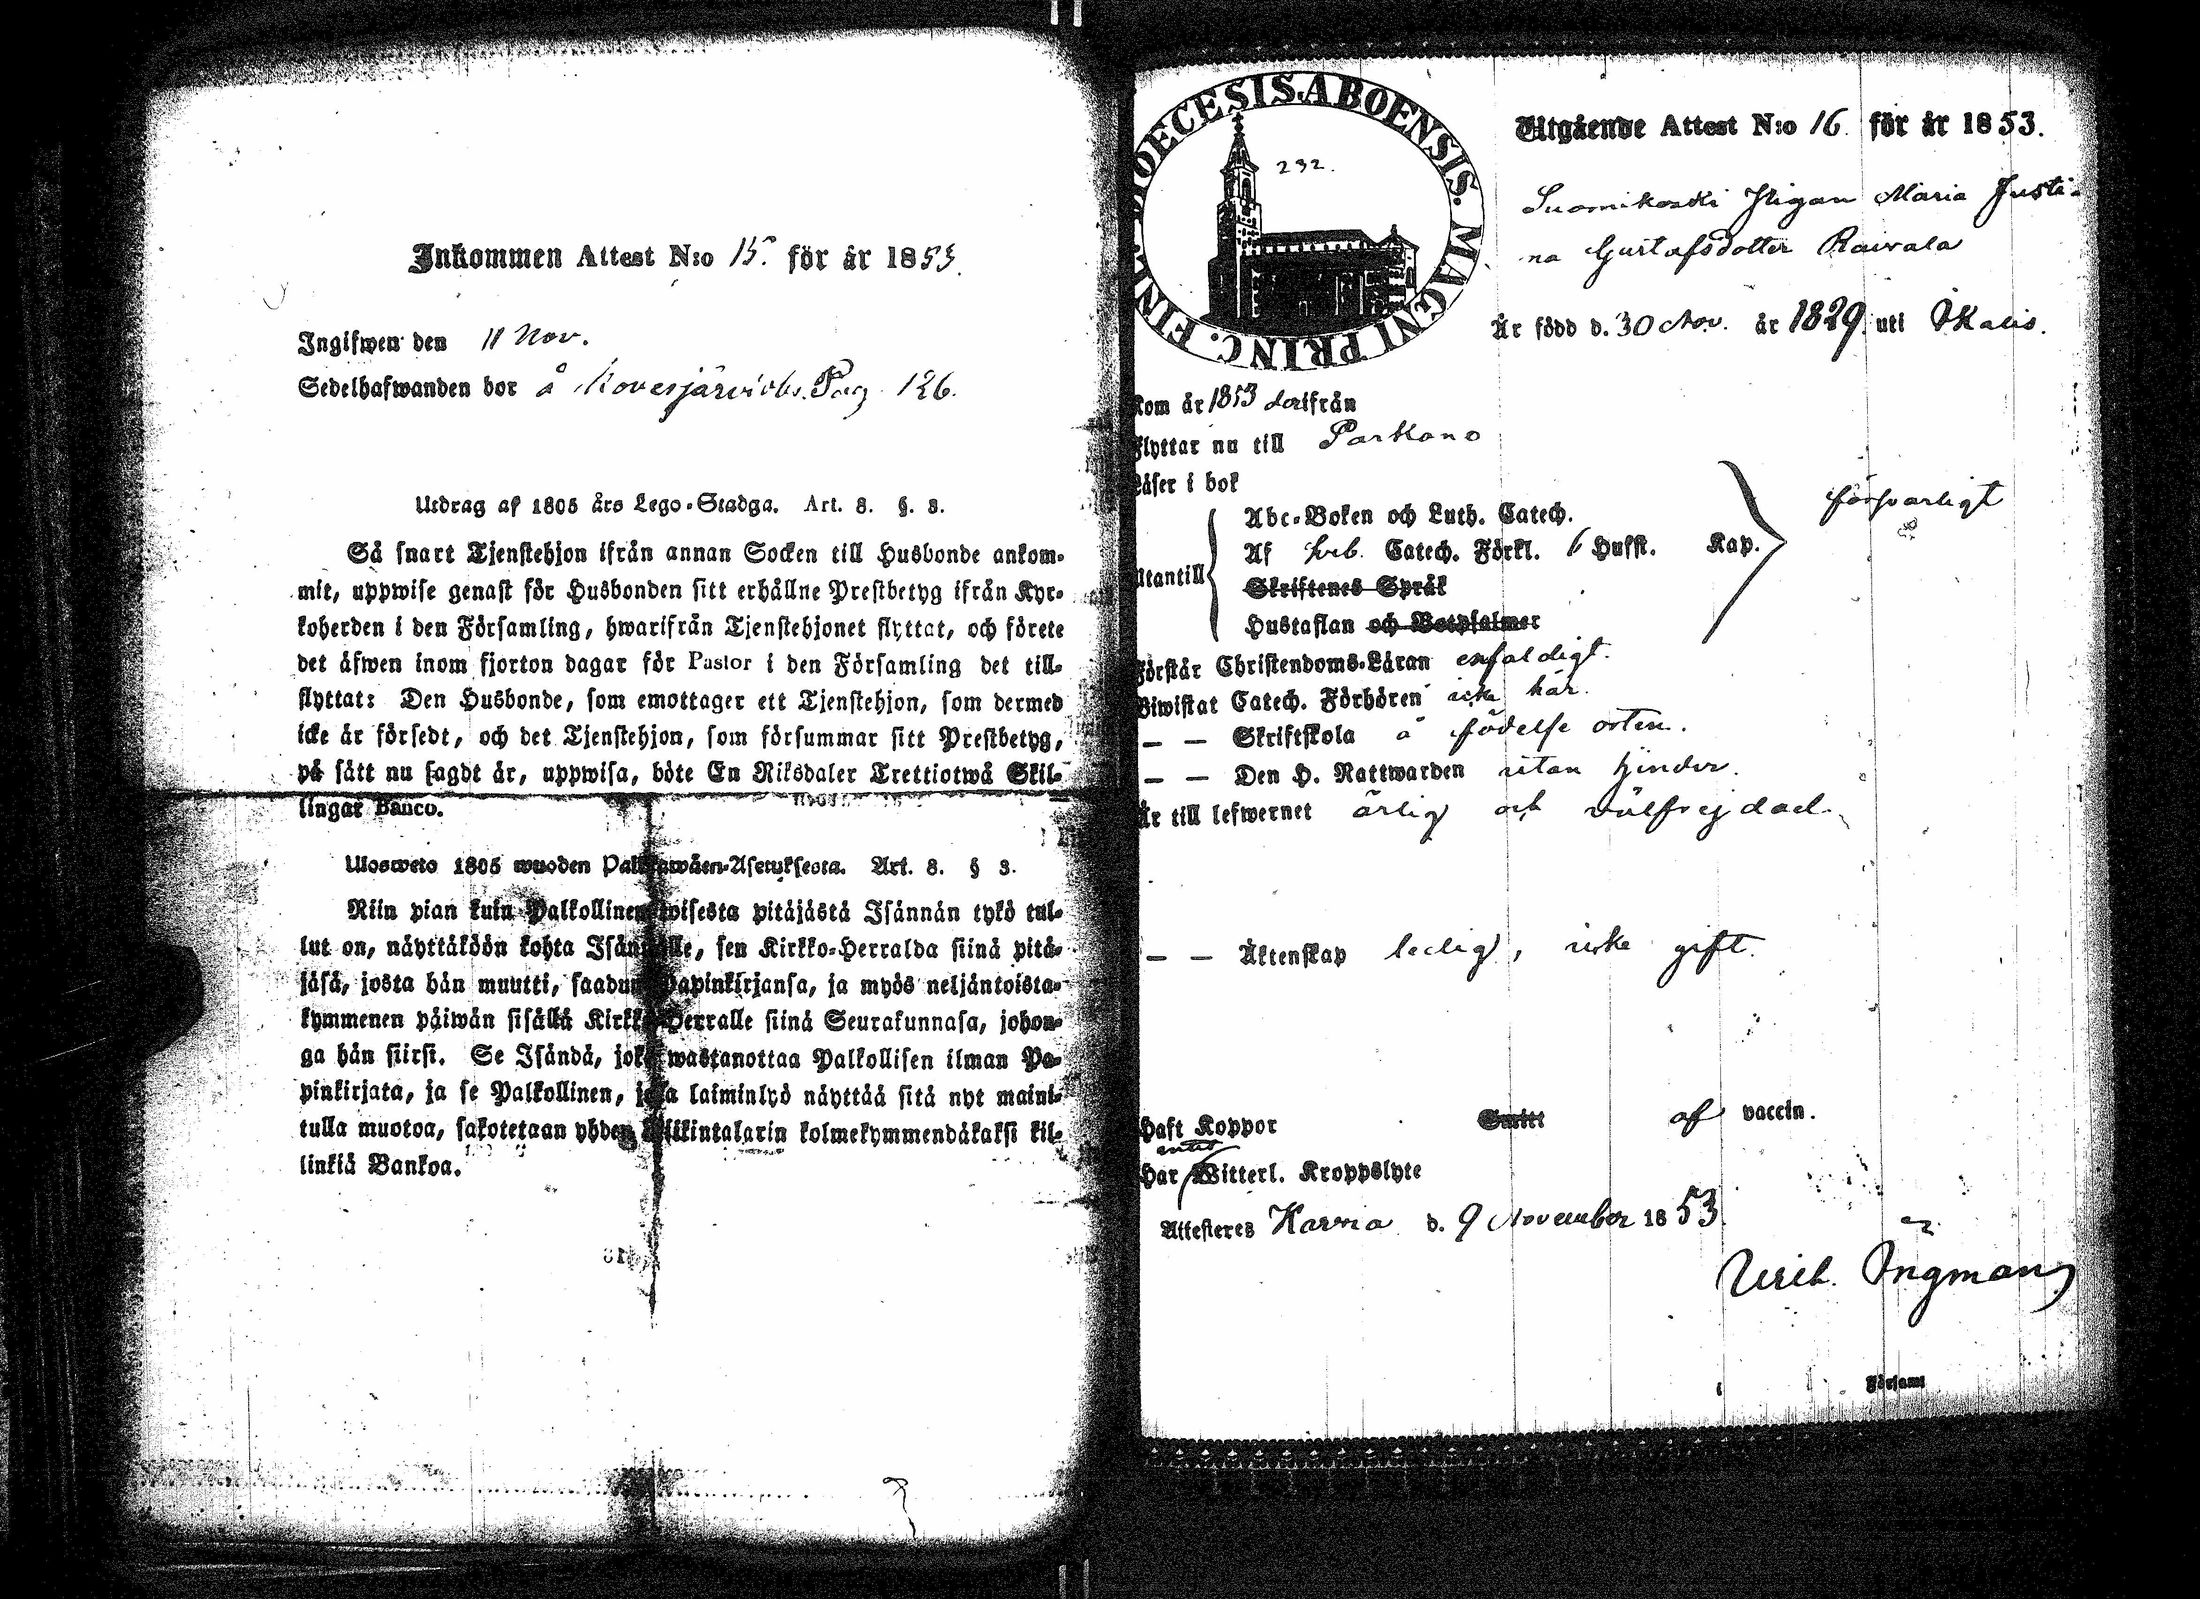 Inkommen Attest N:o 15. för år 1853.
Ingifwen den 11 Nov.
Sedelhafwanden bor å Kovesjärvi Pag. 126.
Utdrag af 1805 års Lego-Stadga. Art. 8. §. 3.
Så snart Tjenstehjon ifrån annan Socken till Husbonde ankom-
mit, uppwise genast för Husbonden sitt erhållne Prestbetyg ifrån Kyr-
koherden i den Församling, hwarifrån Tjenstehjonet flyttat, och förete
det äfwen inom fjorton dagar för Pastor i den Församling det till-
flyttat: Den Husbonde, som emottager ett Tjenstehjon, som dermed
icke är försedt, och det Tjenstehjon, som försummar sitt Prestbetyg,
på sätt nu sagdt är, uppwisa, böte En Riksdaler Trettiotwå Skil-
lingar Banco.
Ulosweto 1805 wuoden Palkkawäen-Asetuksesta. Art. 8. § 3.
Niin pian kuin Palkollinen toisesta pitäjästä Isännän tykö tul-
lut on, näyttäköön kohta Isännälle, sen Kirkko-Herralda siinä pitä-
jäsä, josta hän muutti, saadun Papinkirjansa, ja myös neljäntoista-
kymmenen päiwän sisällä Kirkko-Herralle siinä Seurakunnasa, johon-
ga hän siirsi. Se Isändä, joka wastanottaa Palkollisen ilman Pa-
pinkirjata, ja se Palkollinen, joka laiminlyö näyttää sitä nyt maini-
tulla muotoa, sakotetaan yhden Riikintalarin kolmekymmendäkaksi kil-
linkiä Bankoa.
DIOECESIS ABOENSIS. MAGNI PRINC. FINL.
232.
Utgående Attest N:o 16 för år 1853.
Suomikoski Pigan Maria Justi-
na Gustafsdotter Raivala
Är född d. 30 Nov. år 1829 uti Ikalis.
Kom år 1853 derifrån
Flyttar nu till Parkano
Läser i bok
Abc-Boken och Luth. Catech.
Utantill Af Catech. Förkl. 6 Hufst. Kap. försvarligt
Skriftenes Språk
Hustaflan och Botpsalmer
Förstår Christendoms-Läran enfaldigt.
Biwistat Catech. Förhören icke här.
— — Skriftskola å födelse orten.
— — Den H. Nattwarden utan hinder.
Är till lefwernet ärlig och välfrejdad.
— — Äktenskap ledig, icke gift.
Haft Koppor Smitt af vaccin.
intet
Har Witterl. Kroppslyte
Attesteres Karvia d. 9 November 1853.
Ingman
Församl